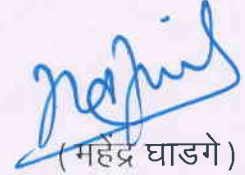 (महेंद्र घाडगे)